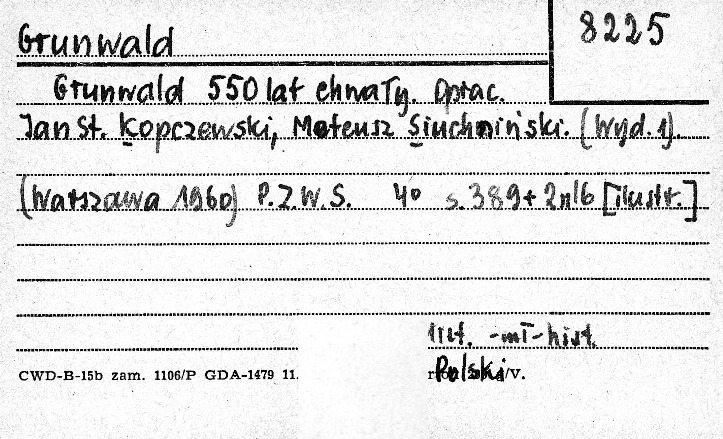 Grunwald
8225
Grunwald 550 lat chwały. Oprac.
Jan St. Kopczewski, Mateusz Siuchniński. (Wyd. 1).
(Warszawa 1960) P.Z.W.S. 4° s. 389+2nlb [ilustr.]
lit. -mł-hist.
CWD-B-15b zam. 1106/P GDA-1479 11.
Polski /V.